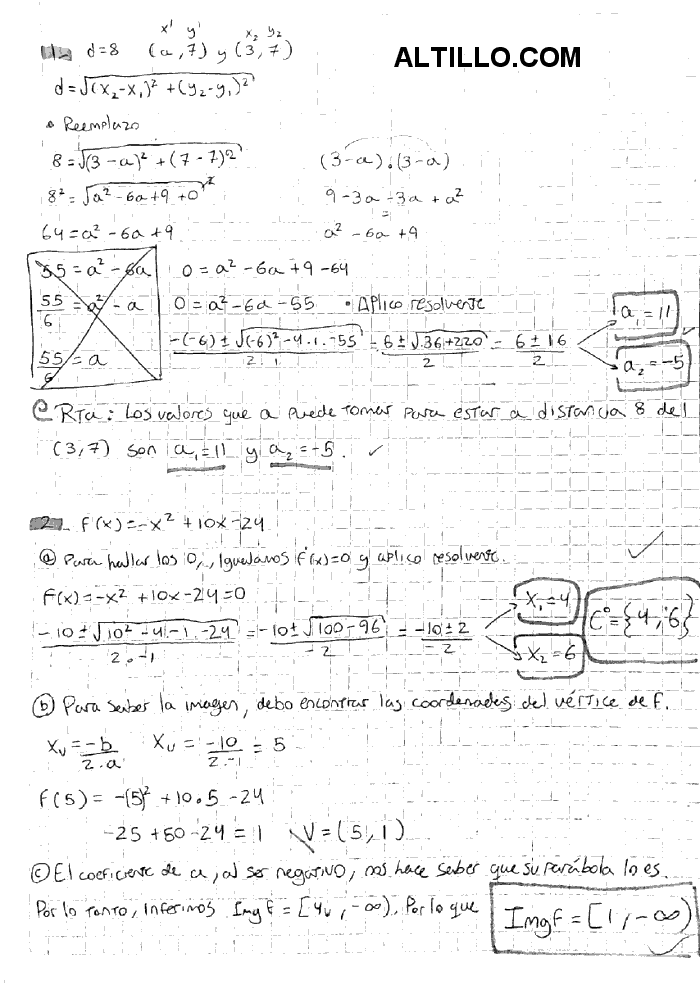 ALTILLO.COM
x' y' x₂ y₂
1) d=8 (a,7) y (3,7)
d=√(x₂-x₁)² +(y₂-y₁)²
• Reemplazo
8=√(3-a)² +(7-7)² (3-a).(3-a)
8²=√a²-6a+9+0² 9-3a-3a+a²
64=a²-6a+9 a²-6a+9
55=a²-6a 0=a²-6a+9-64
55/6=a²-a 0=a²-6a-55 • Aplico resolvente
55/6=a -(-6)±√(-6)²-4.1.-55/2.1 = 6±√36+220/2 = 6±16/2 a₁=11
a₂=-5
Rta: Los valores que a puede tomar para estar a distancia 8 del
(3,7) son a₁=11 y a₂=-5. ✓
2_ f(x)=-x²+10x-24
a) Para hallar los 0, igualamos f(x)=0 y aplico resolvente.
F(x)=-x²+10x-24=0
-10±√10²-4.-1.-24/2.-1 = -10±√100-96/-2 = -10±2/-2 x₁=4 C°={4,6}
x₂=6
b) Para saber la imagen, debo encontrar las coordenadas del vértice de f.
Xv=-b/2.a Xv=-10/2.-1=5
f(5)=-(5)²+10.5-24
-25+50-24=1 V=(5,1)
c) El coeficiente de a, al ser negativo, nos hace saber que su parábola lo es.
Por lo tanto, inferimos Imgf=[yv,-∞). Por lo que Imgf=[1,-∞)